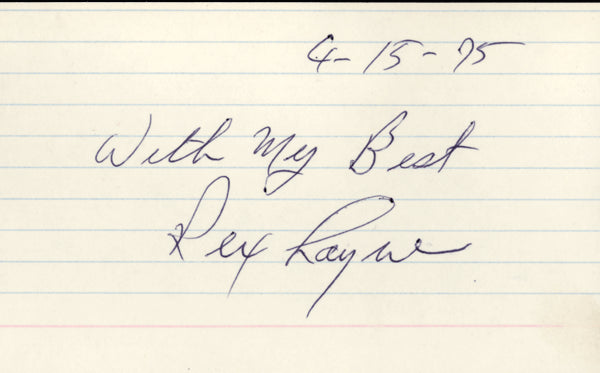 4-15-75
With My Best
Rex Layne